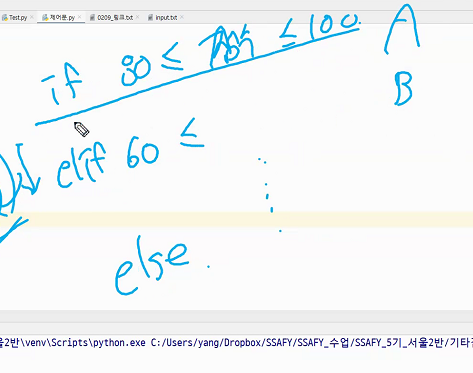 Test.py × 제어문.py × 0209_링크.txt × input.txt ×
if 80 ≤ 점수 ≤ 100 A
B
elif 60 ≤
else.
울2반\venv\Scripts\python.exe C:/Users/yang/Dropbox/SSAFY/SSAFY_수업/SSAFY_5기_서울2반/기타